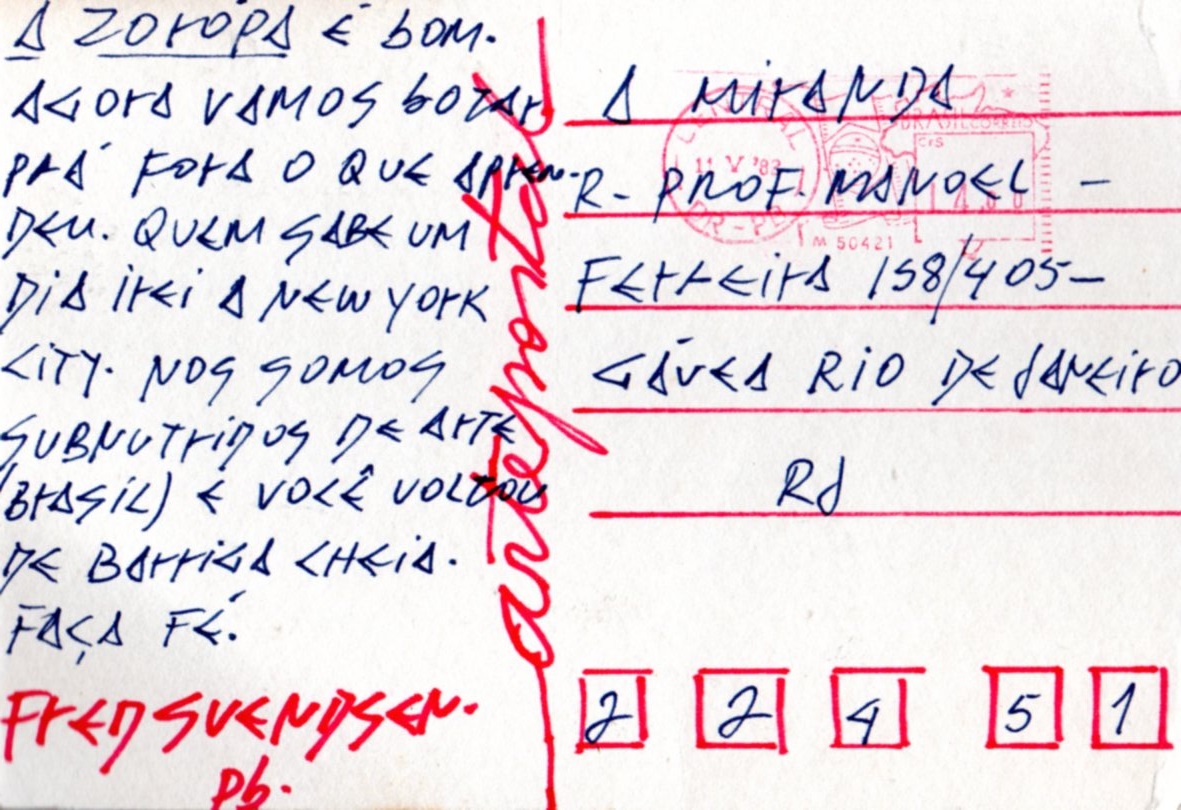 A ZORÓPA É BOM.
AGORA VAMOS BOTAR
PRÁ FORA O QUE APREN-
DEU. QUEM SABE UM
DIA IREI A NEW YORK
CITY. NOS SOMOS
SUBNUTRIDOS DE ARTE
(BRASIL) E VOCÊ VOLTOU
DE BARRIGA CHEIA.
FAÇA FÉ.
FRED SVENDSEN.
pb.
artepostal
A MIRANDA
R- PROF. MANOEL -
FERREIRA 158/405-
GÁVEA RIO DE JANEIRO
RJ
2 2 4 5 1
CENTRAL
11 V '83
DR-PB
BRASIL CORREIO
Cr$
M 50421